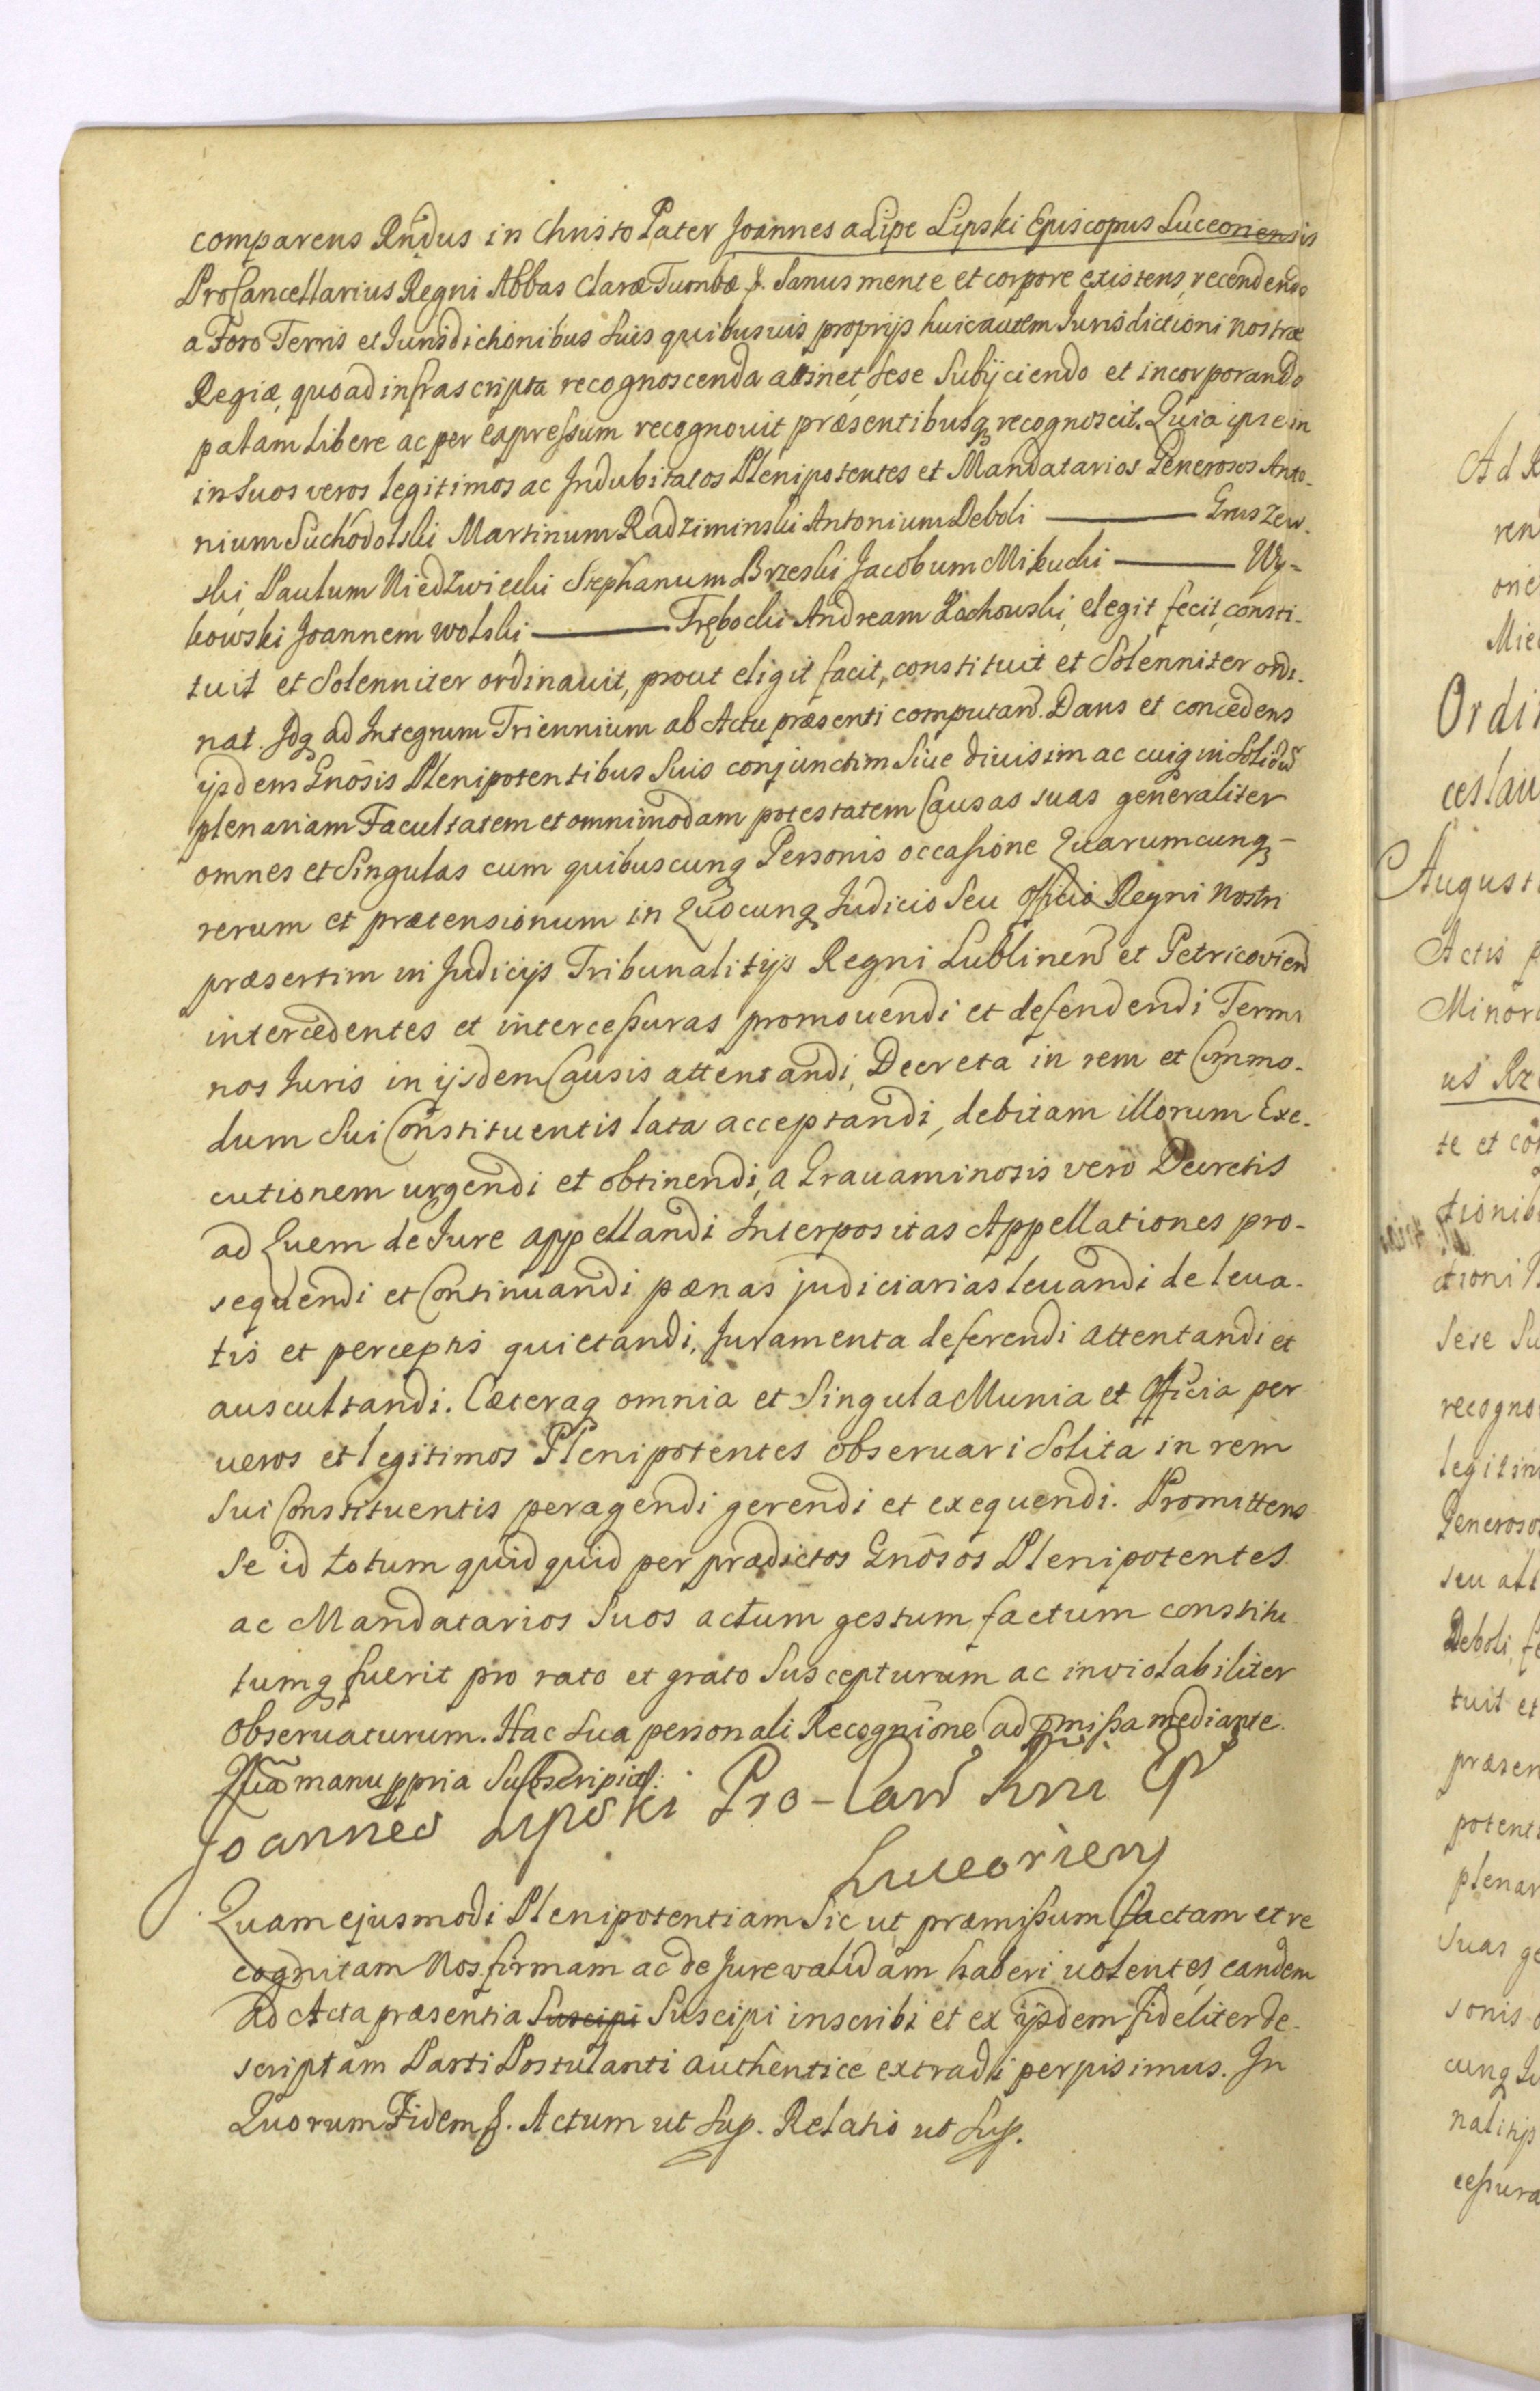 comparens Rndus in Christo Pater Joannes a Lipe Lipski Episcopus Luceoriensis
ProCancellarius Regni Abbas Claræ Tumbæ &. Sanus mente et corpore existens, recendendo
a Foro Terris et Jurisdictionibus suis quibusuis proprijs huic autem Jurisdictioni nostræ
Regiæ, quo ad infrascripta recognoscenda attinet, sese Subijciendo et incorporando
palam libere ac per expreßum recognouit præsentibusq recognoscit. Quia ipse in
in suos veros legitimos ac Indubitatos Plenipotentes et Mandatarios Generosos Anto-
nium Suchodolski Martinum Radziminski Antonium Deboli ——— Gruszew-
ski, Paulum Niedzwiecki Stephanum Brzeski Jacobum Mikucki ——— Wy-
kowski Joannem Wolski ——— Trębocki Andream Lochowski, elegit fecit, consti-
tuit et Solenniter ordinauit, prout eligit facit, constituit et Solenniter ordi-
nat. Idq ad Integrum Triennium ab Actu præsenti computan. Dans et concedens
ijsdem Gnosis Plenipotentibus Suis conjunctim Siue diuisim ac cuiq in Solidu
plenariam Facultatem et omnimodam potestatem Causas suas generaliter
omnes et Singulas cum quibuscunq Personis occasione Quarumcunq-
rerum et prætensionum in Quocunq Judicio Seu Officio Regni Nostri
præsertim in Judicijs Tribunalitijs Regni Lublinen et Petricovien
intercedentes et interceßuras promouendi et defendendi Termi
nos Juris in ijsdem Causis attentandi, Decreta in rem et Commo-
dum Sui Constituentis lata acceptandi, debitam illorum Exe-
cutionem urgendi et obtinendi, a Grauaminosis vero Decretis
ad Quem de Jure appellandi Interpositas Appellationes pro-
sequendi et Continuandi pænas judiciarias leuandi de leua-
tis et perceptis quietandi, Juramenta deferendi attentandi et
auscultandi. Cæteraq omnia et Singula Munia et Officia per
ueros et legitimos Plenipotentes obseruari Solita in rem
Sui Constituentis peragendi gerendi et exequendi. Promittens
Se id totum quidquid per prædictos Gnosos Plenipotentes
ac Mandatarios Suos actum gestum factum constitu
tumq fuerit pro rato et grato Suscepturum ac inviolabiliter
Obseruaturum. Hac Sua personali Recognione ad pmißa mediante.
manu ppria Subscripsit.
Joannes Lipski Pro-Can Rni Ep
Luceorien
Quam ejusmodi Plenipotentiam Sic ut præmißum factam et re
cognitam Nos firmam ac de Jure validam haberi uolentes, eandem
ad Acta præsentia Suscipi Suscipi inscribi et ex ijsdem fideliter de-
scriptam Parti Postulanti authentice extradi permisimus. In
Quorum Fidem &. Actum ut Sup. Relatio ut Sup.